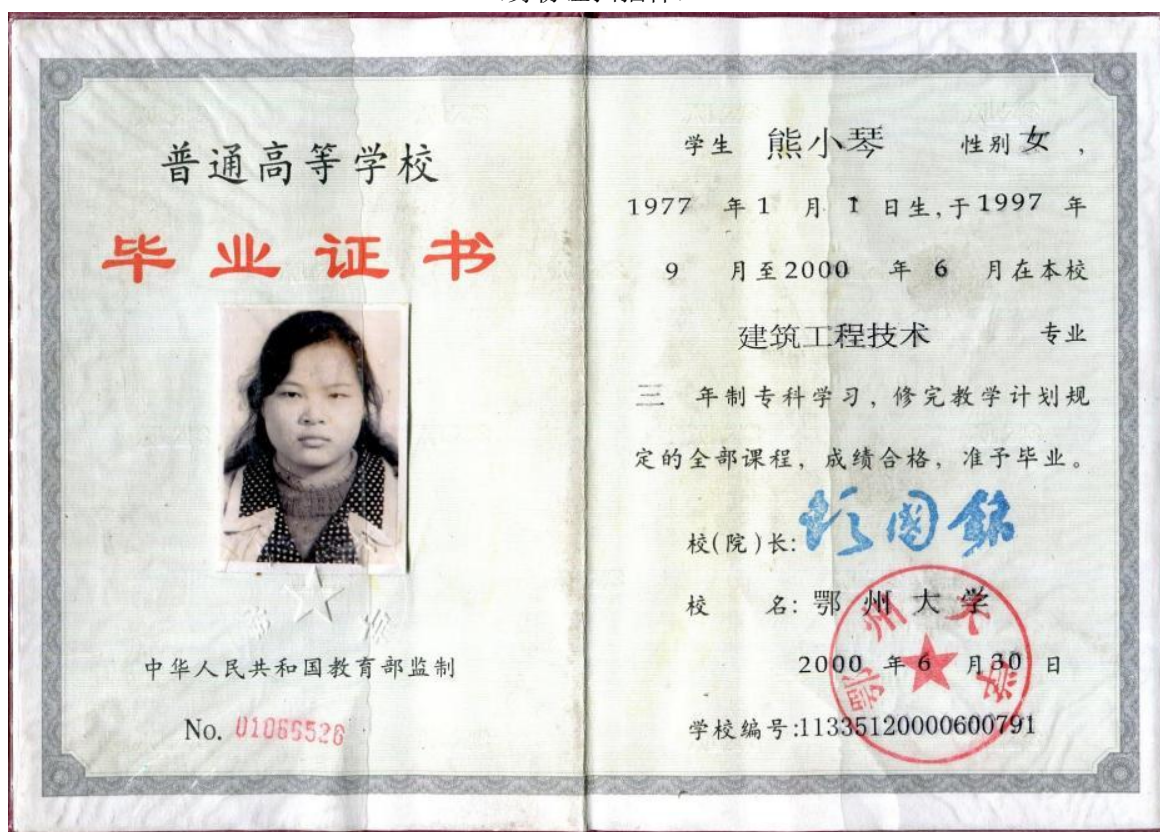 普通高等学校
毕业证书
中华人民共和国教育部监制
No. 01066526
学生 熊小琴 性别 女 ,
1977 年 1 月 1 日生,于 1997 年
9 月至 2000 年 6 月在本校
建筑工程技术 专业
三 年制专科学习, 修完教学计划规
定的全部课程, 成绩合格, 准予毕业。
校(院)长:
校 名: 鄂州大学
2000 年 6 月 30 日
学校编号:11335120000600791
鄂州大学